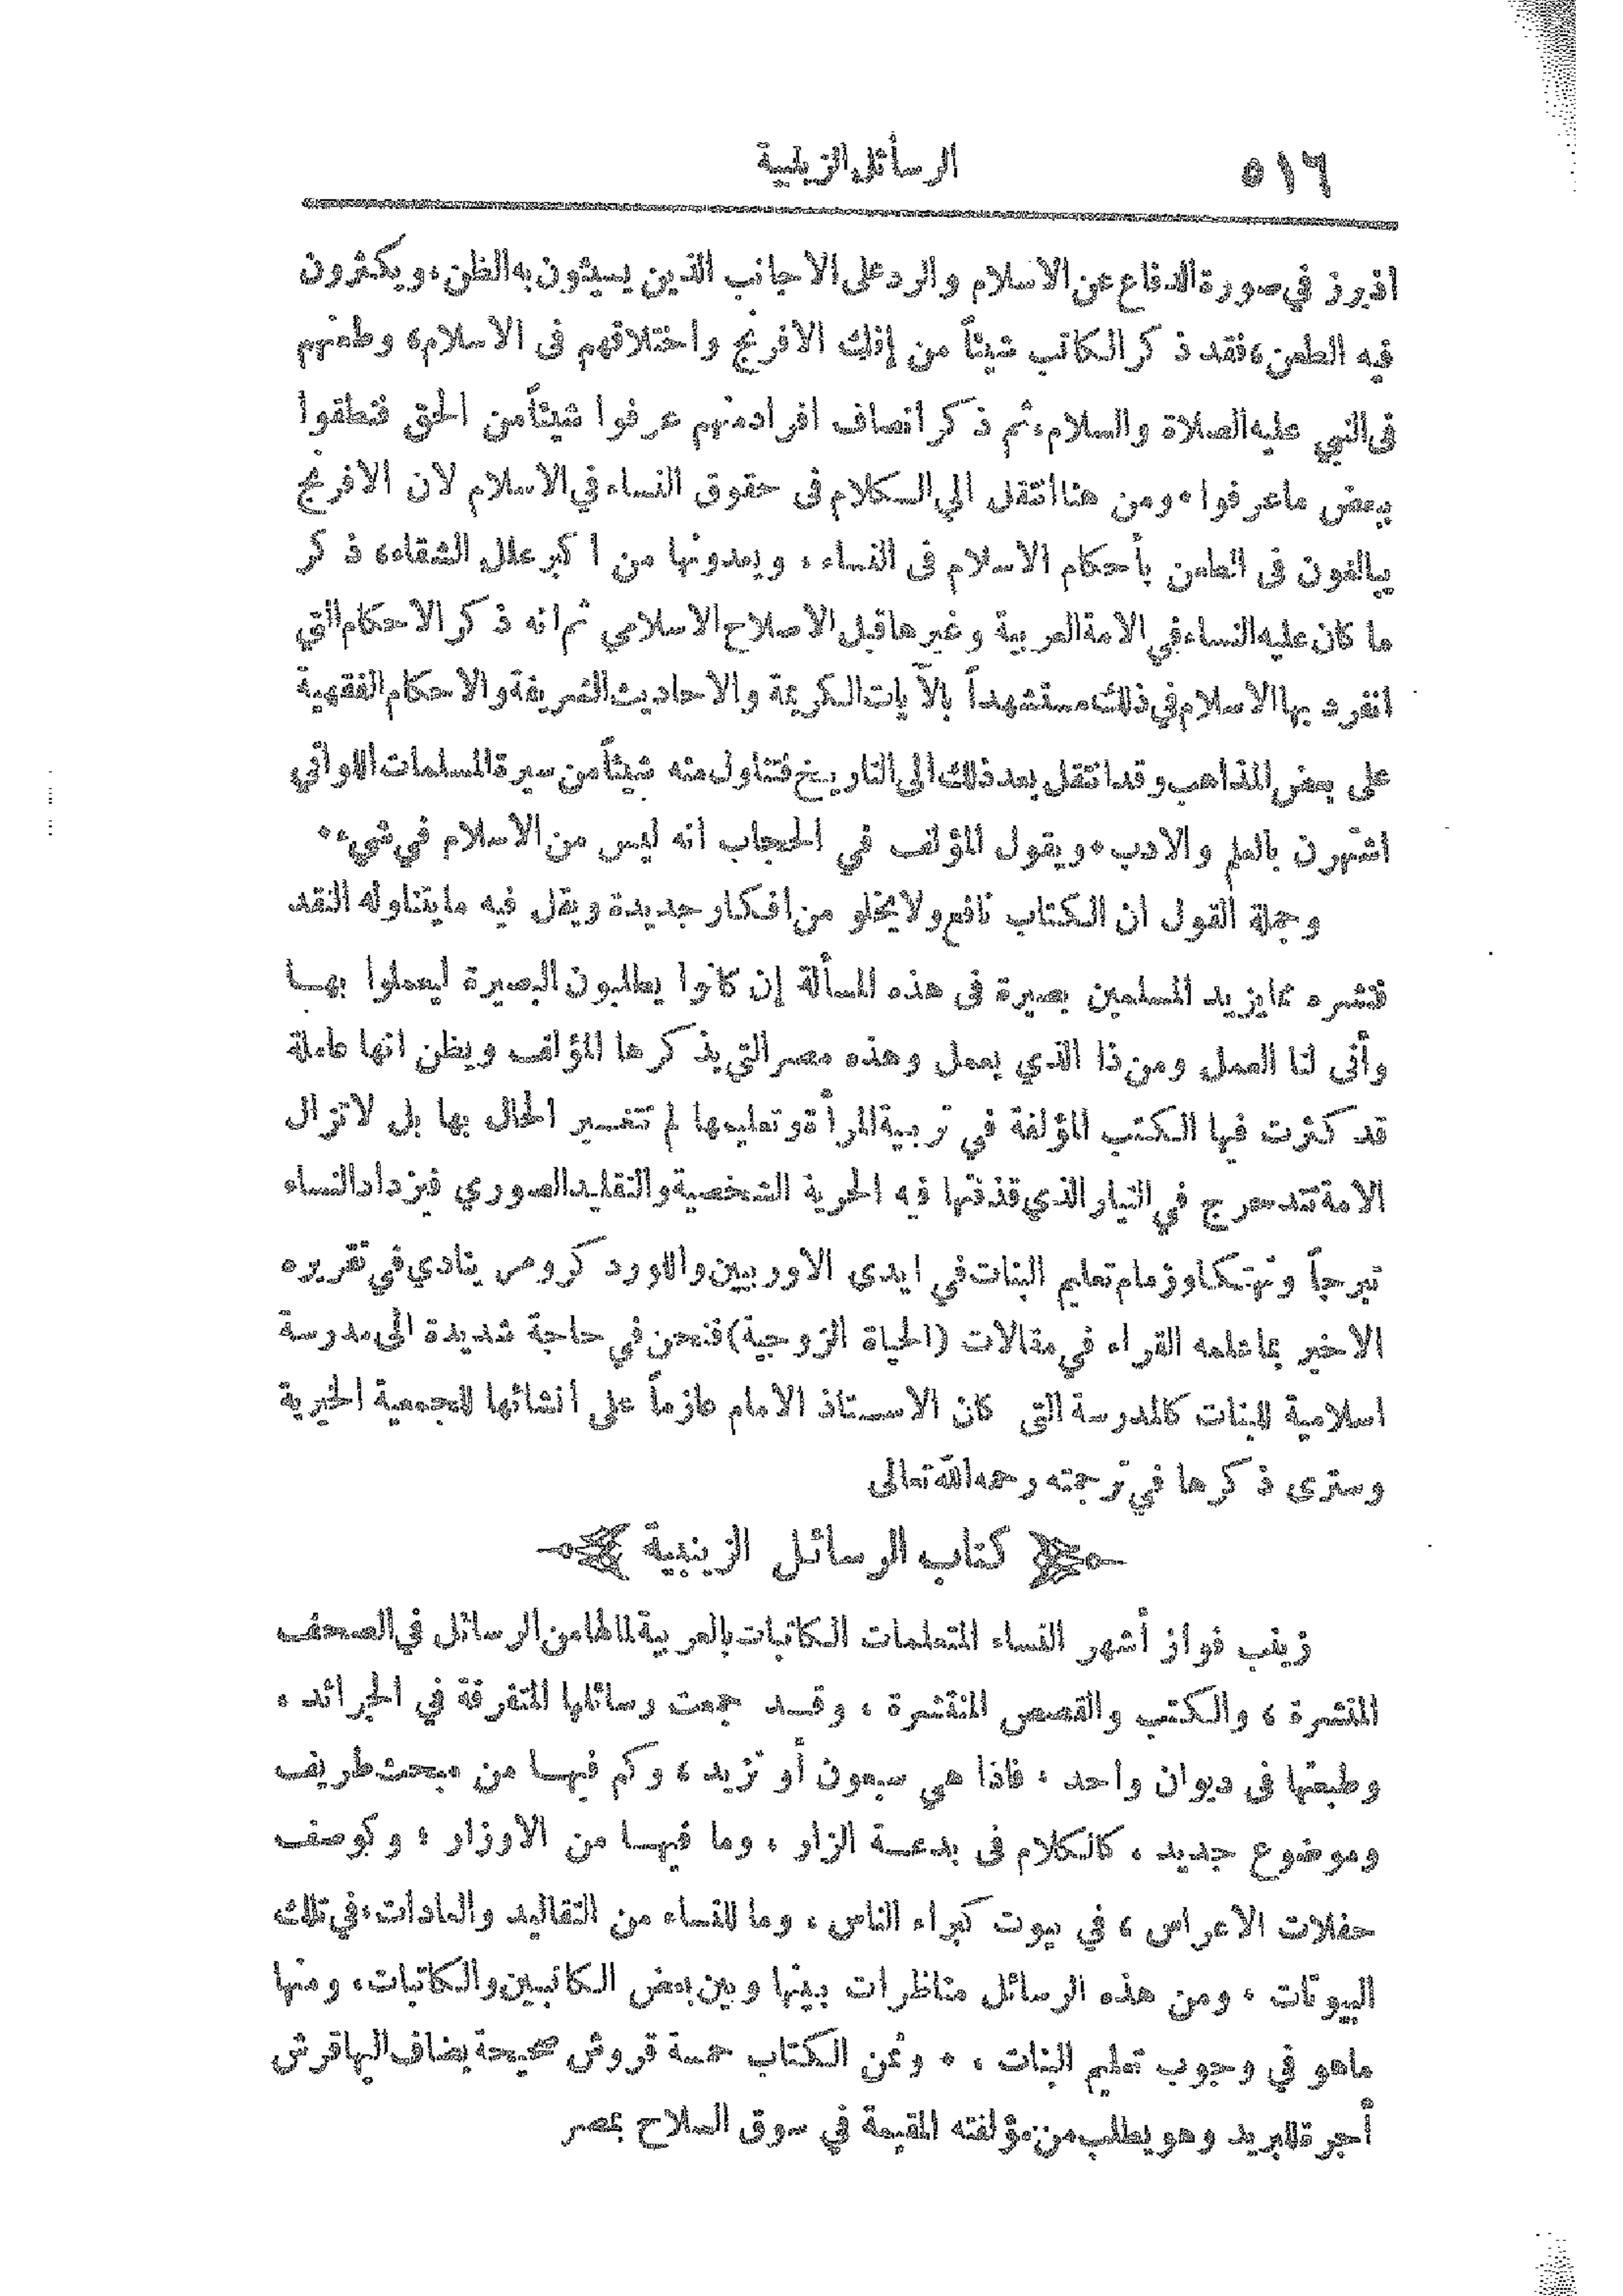 ٥١٦ الرسائل الزينبية
اذ برز في صورة الدفاع عن الاسلام والرد على الاجانب الذين يسيئون به الظن، ويكثرون
فيه الطعن، فقد ذكر الكاتب شيئاً من إفك الافرنج واختلاقهم فى الاسلام، وطعنهم
فى النبي عليه الصلاة والسلام، ثم ذكر انصاف افراد منهم عرفوا شيئاً من الحق فنطقوا
ببعض ما عرفوا . ومن هنا انتقل الي الكلام فى حقوق النساء في الاسلام لان الافرنج
يبالغون فى الطعن بأحكام الاسلام فى النساء ، ويعدونها من اكبر علل الشقاء، ذكر
ما كان عليه النساء في الامة العربية وغيرها قبل الاصلاح الاسلامي ثم انه ذكر الاحكام التي
انفرد بها الاسلام في ذلك مستشهداً بالآيات الكريمة والاحاديث الشريفة والاحكام الفقهية
على بعض المذاهب وقد انتقل بعد ذلك الى التاريخ فتناول منه شيئاً من سيرة المسلمات اللواتي
اشتهرن بالعلم والادب . ويقول المؤلف في الحجاب انه ليس من الاسلام في شيء .
وجملة القول ان الكتاب نافع ولا يخلو من افكار جديدة ويقل فيه ما يتناوله النقد
فنشره مما يزيد المسلمين بصيرة فى هذه المسألة إن كانوا يطلبون البصيرة ليعملوا بها
وأنى لنا العمل ومن ذا الذي يعمل وهذه مصر التي يذكرها المؤلف ويظن انها عاملة
قد كثرت فيها الكتب المؤلفة في تربية المرأة وتعليمها لم تتغير الحال بها بل لا تزال
الامة تتدحرج في التيار الذي قذفتها فيه الحرية الشخصية والتقليد الصوري فيزداد النساء
تبرجاً وتهتكا وزمام تعليم البنات في ايدى الاوربيين واللورد كرومر ينادي في تقريره
الاخير بما علمه القراء في مقالات (الحياة الزوجية) فنحن في حاجة شديدة الى مدرسة
اسلامية للبنات كالمدرسة التى كان الاستاذ الامام عازماً على انشائها للجمعية الخيرية
وسترى ذكرها في ترجمته رحمه الله تعالى
كتاب الرسائل الزينبية
زينب فواز أشهر النساء المتعلمات الكاتبات بالعربية لما لها من الرسائل في الصحف
المنتشرة ، والكتب والقصص المنتشرة ، وقد جمعت رسائلها المتفرقة في الجرائد ،
وطبعتها فى ديوان واحد ، فاذا هي سبعون أو تزيد ، وكم فيها من مبحث طريف
وموضوع جديد ، كالكلام فى بدعة الزار ، وما فيها من الاوزار ، وكوصف
حفلات الاعراس ، في بيوت كبراء الناس ، وما للنساء من التقاليد والعادات ، في تلك
البيوتات ، ومن هذه الرسائل مناظرات بينها وبين بعض الكاتبين والكاتبات، ومنها
ماهو في وجوب تعليم البنات ، . وثمن الكتاب خمسة قروش صحيحة يضاف اليها قرش
أجرة للبريد وهو يطلب من مؤلفته المقيمة في سوق السلاح بمصر